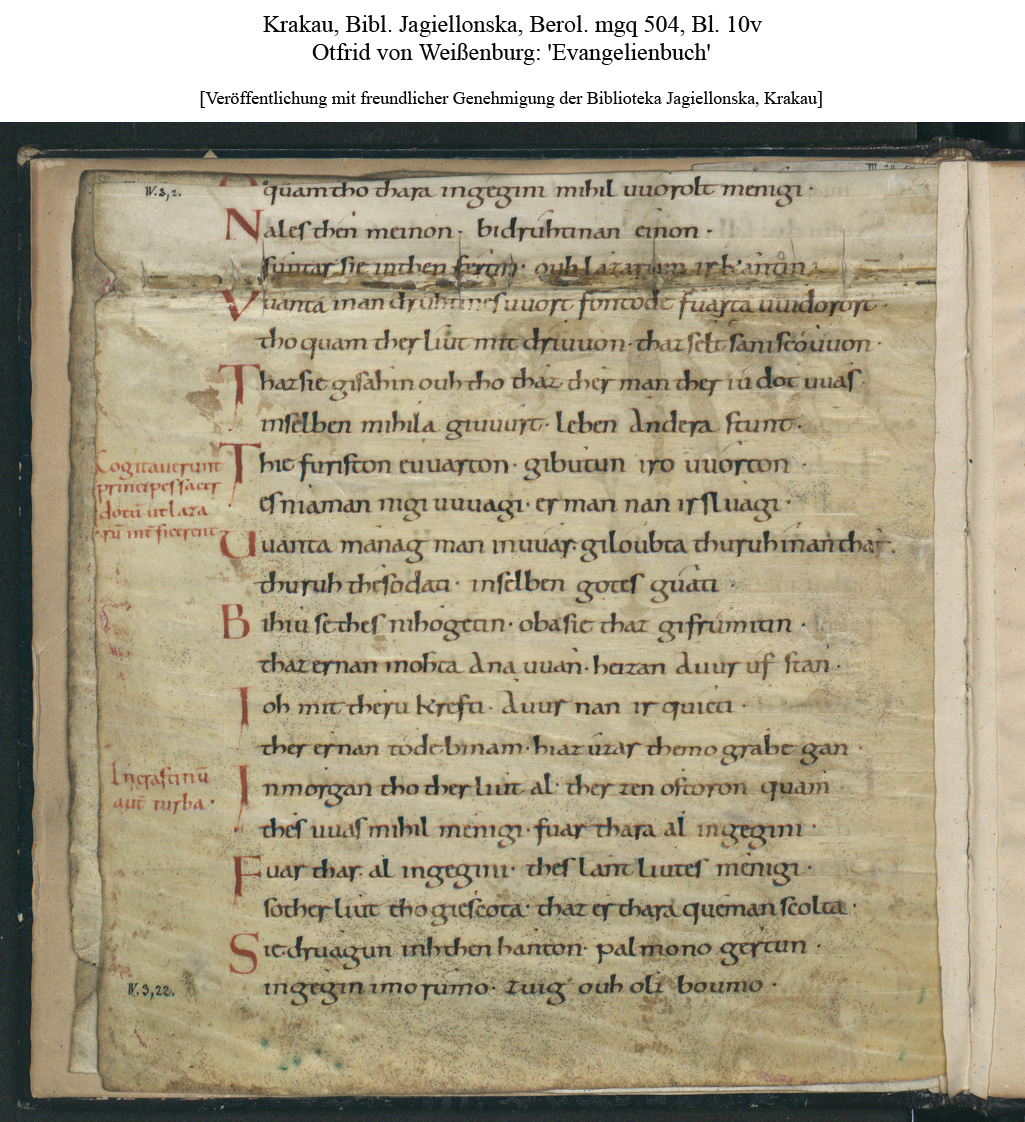 Krakau, Bibl. Jagiellonska, Berol. mgq 504, Bl. 10v
Otfrid von Weißenburg: 'Evangelienbuch'
[Veröffentlichung mit freundlicher Genehmigung der Biblioteka Jagiellonska, Krakau]
IV.3,2.
quam tho thara ingegini mihil uuorolt menigi ·
Nales then meinon · bidruhtinan einon ·
suntar sie inthen ferti · ouh lazarum
Vuanta man druhtines uuort fon tode fuarta uuidorort ·
tho quam ther liut mit driuuon · thaz selt sani scouuon ·
Thaz sie gisahin ouh tho thaz · ther man ther iu dot uuas ·
inselben mihila giuuurt · leben andera stunt ·
Cogitauerunt
principes sacer
dotū ut laza
rū int̄ficerent
Thie furiston euuarton · gibutun iro uuorton ·
es niaman nigi uuuagi · er man nan irsluagi ·
Uuanta manag man inuuar · giloubta thuruh inan thar ·
thuruh thesodati · inselben gotes guati
Bihiu se thes nihogetin · oba sie thaz gifrumitin ·
thaz er nan mohta ana uuan · heizan auur uf stan ·
Ioh mit theru krefti · auur nan ir quicti ·
ther er nan tode binam · hiaz uzar themo grabe gan ·
In crastinū
aut̄ turba ·
In morgan tho ther liut al · ther zen ostoron quam
thes uuas mihil menigi · fuar thara al ingegini ·
Fuar thar al ingegini · thes lant liutes menigi ·
so ther liut tho giescota · thaz er thara queman scolta ·
Sie druagun in hthen hanton · palmono gertun ·
IV.3,22.
ingegin imo rumo · zuig ouh oli boumo ·